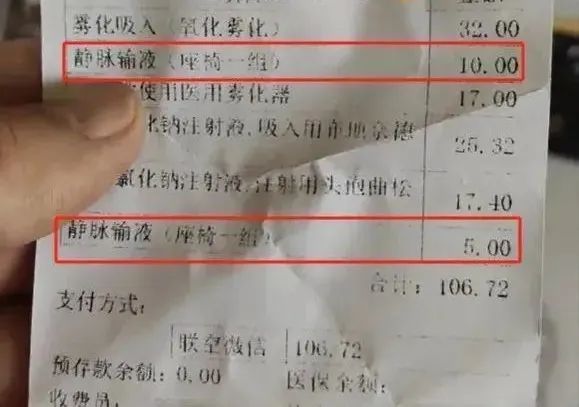 雾化吸入（氧化雾化） 32.00
静脉输液（座椅一组） 10.00
使用医用雾化器 17.00
化钠注射液,吸入用布地奈德 25.32
氯化钠注射液,注射用头孢曲松 17.40
静脉输液（座椅一组） 5.00
合计: 106.72
支付方式:
联空微信 106.72
预存款余额: 0.00 医保余额:
收费员: